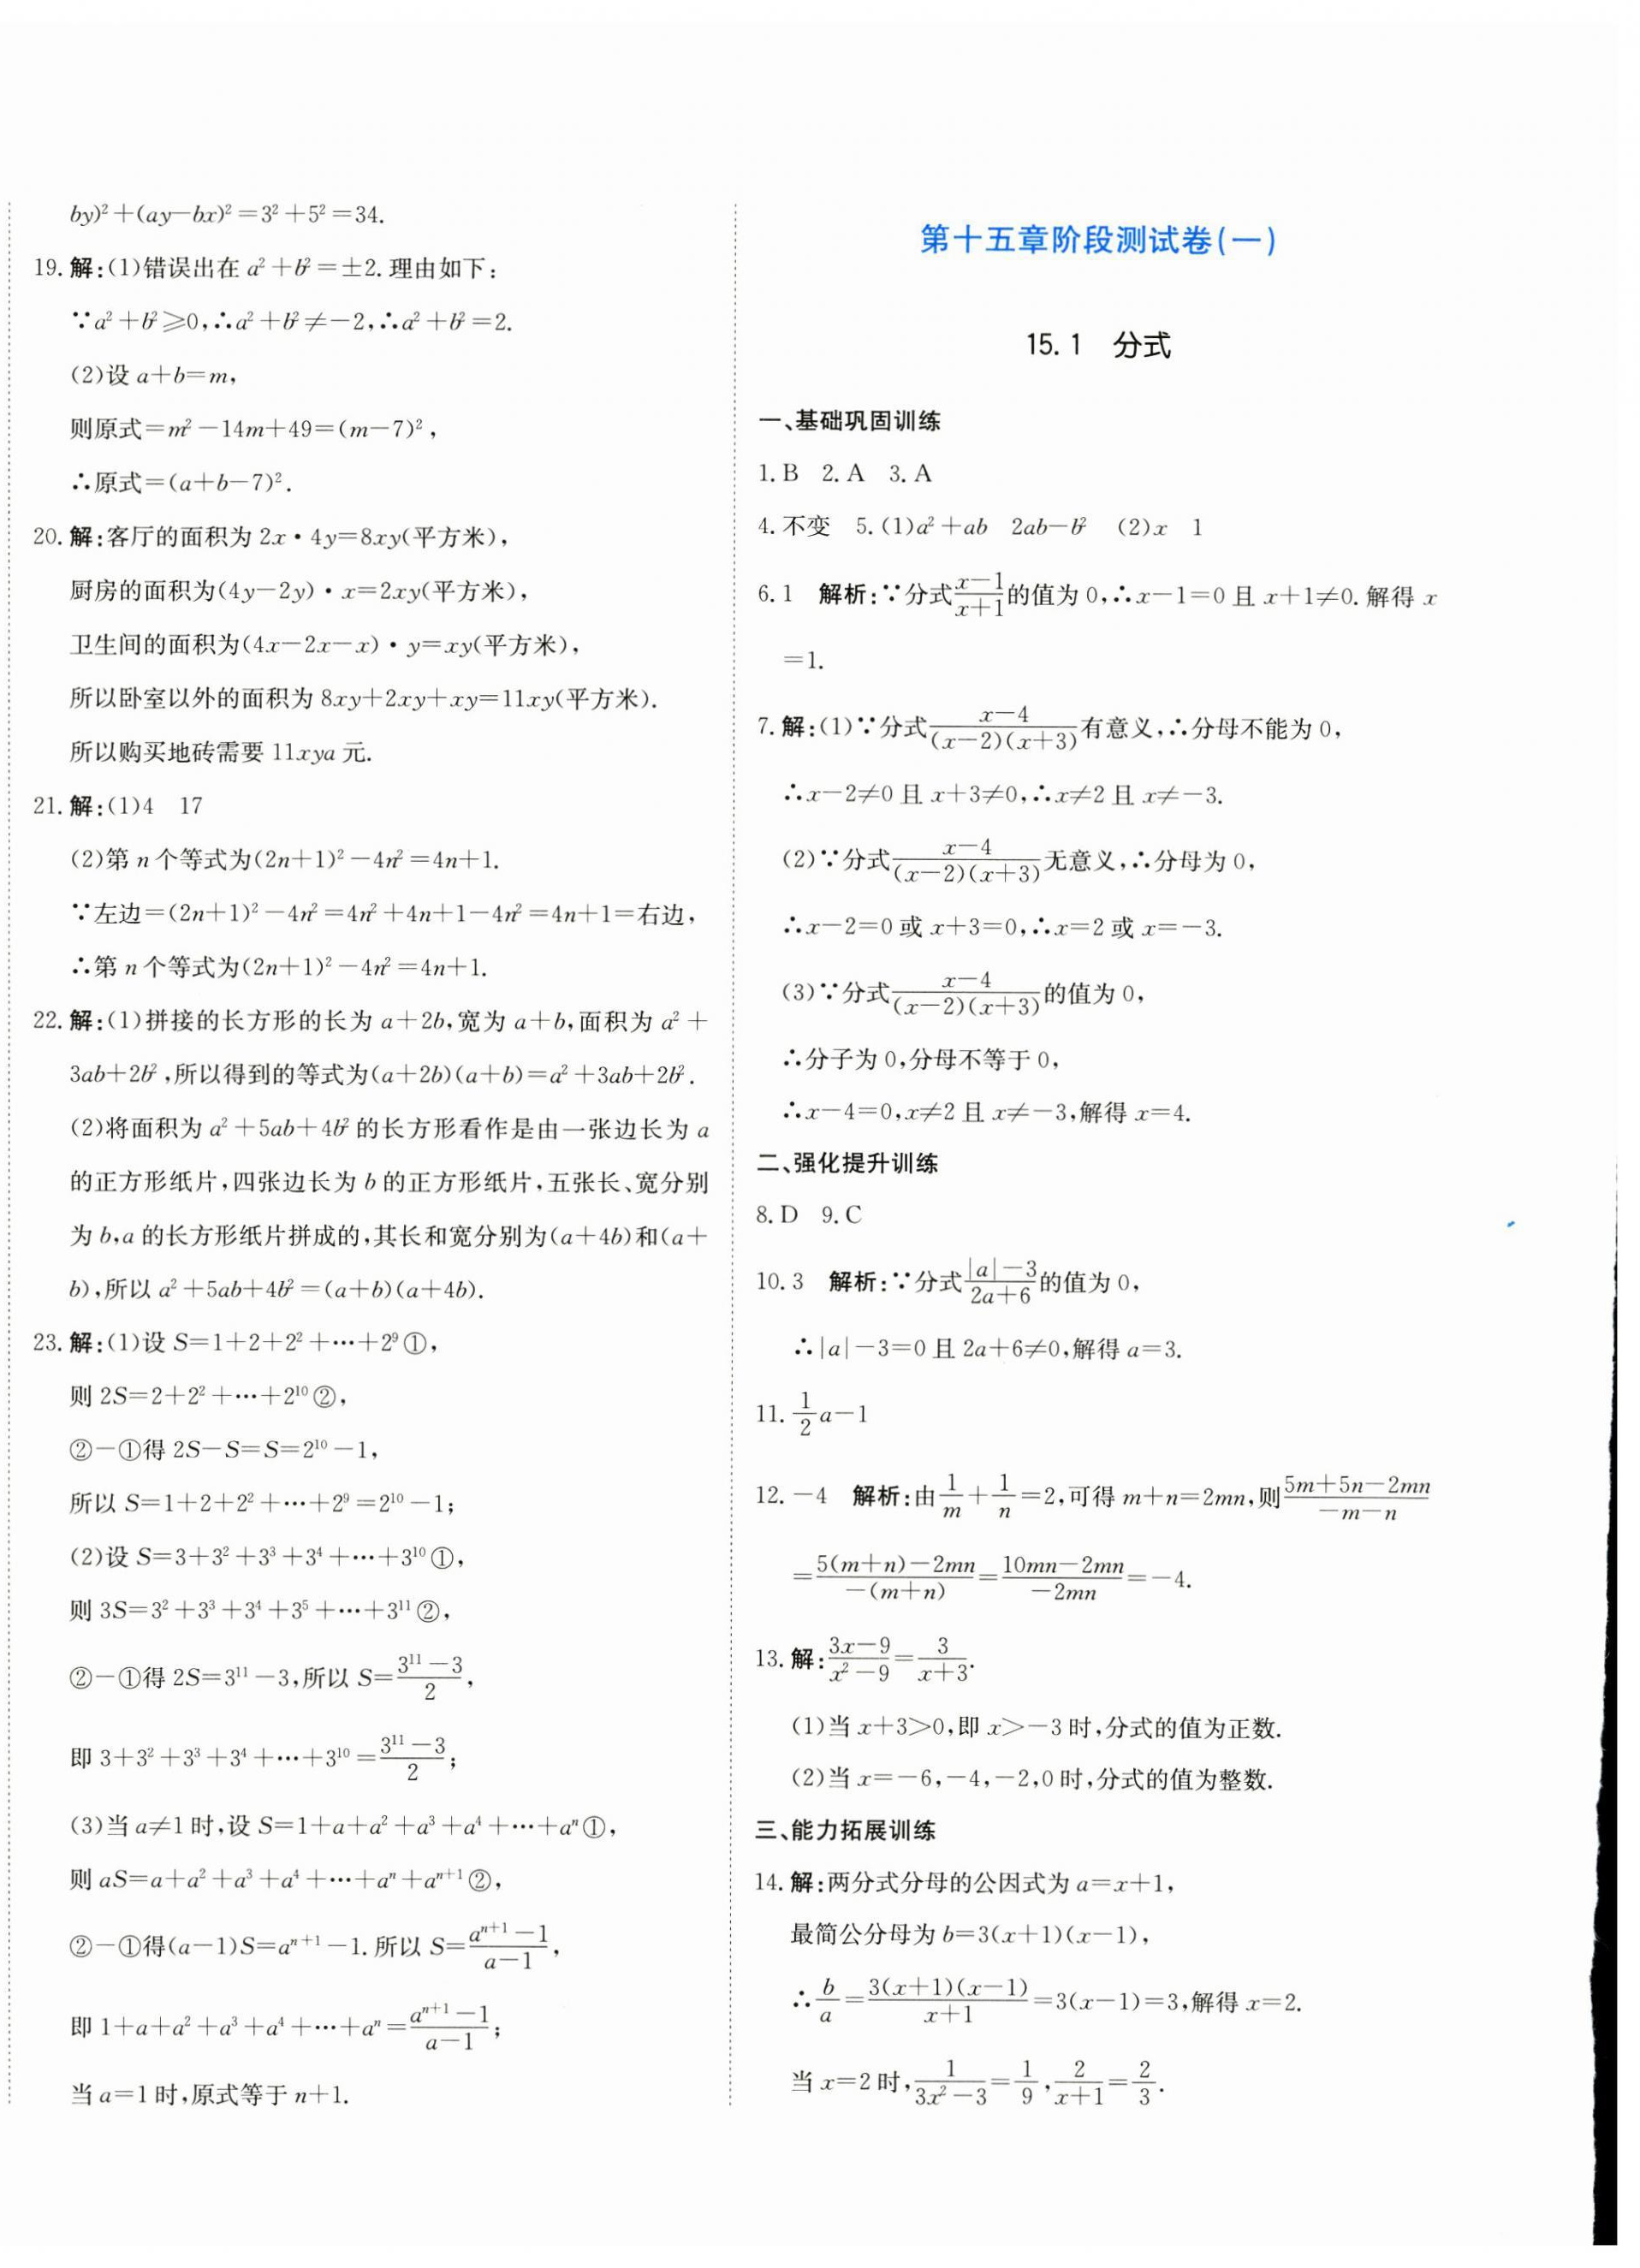 by)²+(ay-bx)²=3²+5²=34.
19.解:(1)错误出在 a²+b²=±2.理由如下:
∵a²+b²≥0,∴a²+b²≠-2,∴a²+b²=2.
(2)设 a+b=m,
则原式=m²-14m+49=(m-7)²,
∴原式=(a+b-7)².
20.解:客厅的面积为 2x·4y=8xy(平方米),
厨房的面积为(4y-2y)·x=2xy(平方米),
卫生间的面积为(4x-2x-x)·y=xy(平方米),
所以卧室以外的面积为 8xy+2xy+xy=11xy(平方米).
所以购买地砖需要 11xya 元.
21.解:(1)4 17
(2)第 n 个等式为(2n+1)²-4n²=4n+1.
∵左边=(2n+1)²-4n²=4n²+4n+1-4n²=4n+1=右边,
∴第 n 个等式为(2n+1)²-4n²=4n+1.
22.解:(1)拼接的长方形的长为 a+2b,宽为 a+b,面积为 a²+
3ab+2b²,所以得到的等式为(a+2b)(a+b)=a²+3ab+2b².
(2)将面积为 a²+5ab+4b² 的长方形看作是由一张边长为 a
的正方形纸片,四张边长为 b 的正方形纸片,五张长、宽分别
为 b,a 的长方形纸片拼成的,其长和宽分别为(a+4b)和(a+
b),所以 a²+5ab+4b²=(a+b)(a+4b).
23.解:(1)设 S=1+2+2²+…+2⁹①,
则 2S=2+2²+…+2¹⁰②,
②-①得 2S-S=S=2¹⁰-1,
所以 S=1+2+2²+…+2⁹=2¹⁰-1;
(2)设 S=3+3²+3³+3⁴+…+3¹⁰①,
则 3S=3²+3³+3⁴+3⁵+…+3¹¹②,
②-①得 2S=3¹¹-3,所以 S=(3¹¹-3)/2,
即 3+3²+3³+3⁴+…+3¹⁰=(3¹¹-3)/2;
(3)当 a≠1 时,设 S=1+a+a²+a³+a⁴+…+aⁿ①,
则 aS=a+a²+a³+a⁴+…+aⁿ+aⁿ⁺¹②,
②-①得(a-1)S=aⁿ⁺¹-1.所以 S=(aⁿ⁺¹-1)/(a-1),
即 1+a+a²+a³+a⁴+…+aⁿ=(aⁿ⁺¹-1)/(a-1);
当 a=1 时,原式等于 n+1.
第十五章阶段测试卷(一)
15.1 分式
一、基础巩固训练
1.B 2.A 3.A
4.不变 5.(1)a²+ab 2ab-b² (2)x 1
6.1 解析:∵分式(x-1)/(x+1)的值为 0,∴x-1=0 且 x+1≠0.解得 x
=1.
7.解:(1)∵分式(x-4)/((x-2)(x+3))有意义,∴分母不能为 0,
∴x-2≠0 且 x+3≠0,∴x≠2 且 x≠-3.
(2)∵分式(x-4)/((x-2)(x+3))无意义,∴分母为 0,
∴x-2=0 或 x+3=0,∴x=2 或 x=-3.
(3)∵分式(x-4)/((x-2)(x+3))的值为 0,
∴分子为 0,分母不等于 0,
∴x-4=0,x≠2 且 x≠-3,解得 x=4.
二、强化提升训练
8.D 9.C
10.3 解析:∵分式(|a|-3)/(2a+6)的值为 0,
∴|a|-3=0 且 2a+6≠0,解得 a=3.
11.1/2 a-1
12.-4 解析:由1/m+1/n=2,可得 m+n=2mn,则(5m+5n-2mn)/(-m-n)
=(5(m+n)-2mn)/(-(m+n))=(10mn-2mn)/(-2mn)=-4.
13.解:(3x-9)/(x²-9)=3/(x+3).
(1)当 x+3>0,即 x>-3 时,分式的值为正数.
(2)当 x=-6,-4,-2,0 时,分式的值为整数.
三、能力拓展训练
14.解:两分式分母的公因式为 a=x+1,
最简公分母为 b=3(x+1)(x-1),
∴b/a=(3(x+1)(x-1))/(x+1)=3(x-1)=3,解得 x=2.
当 x=2 时,1/(3x²-3)=1/9,2/(x+1)=2/3.